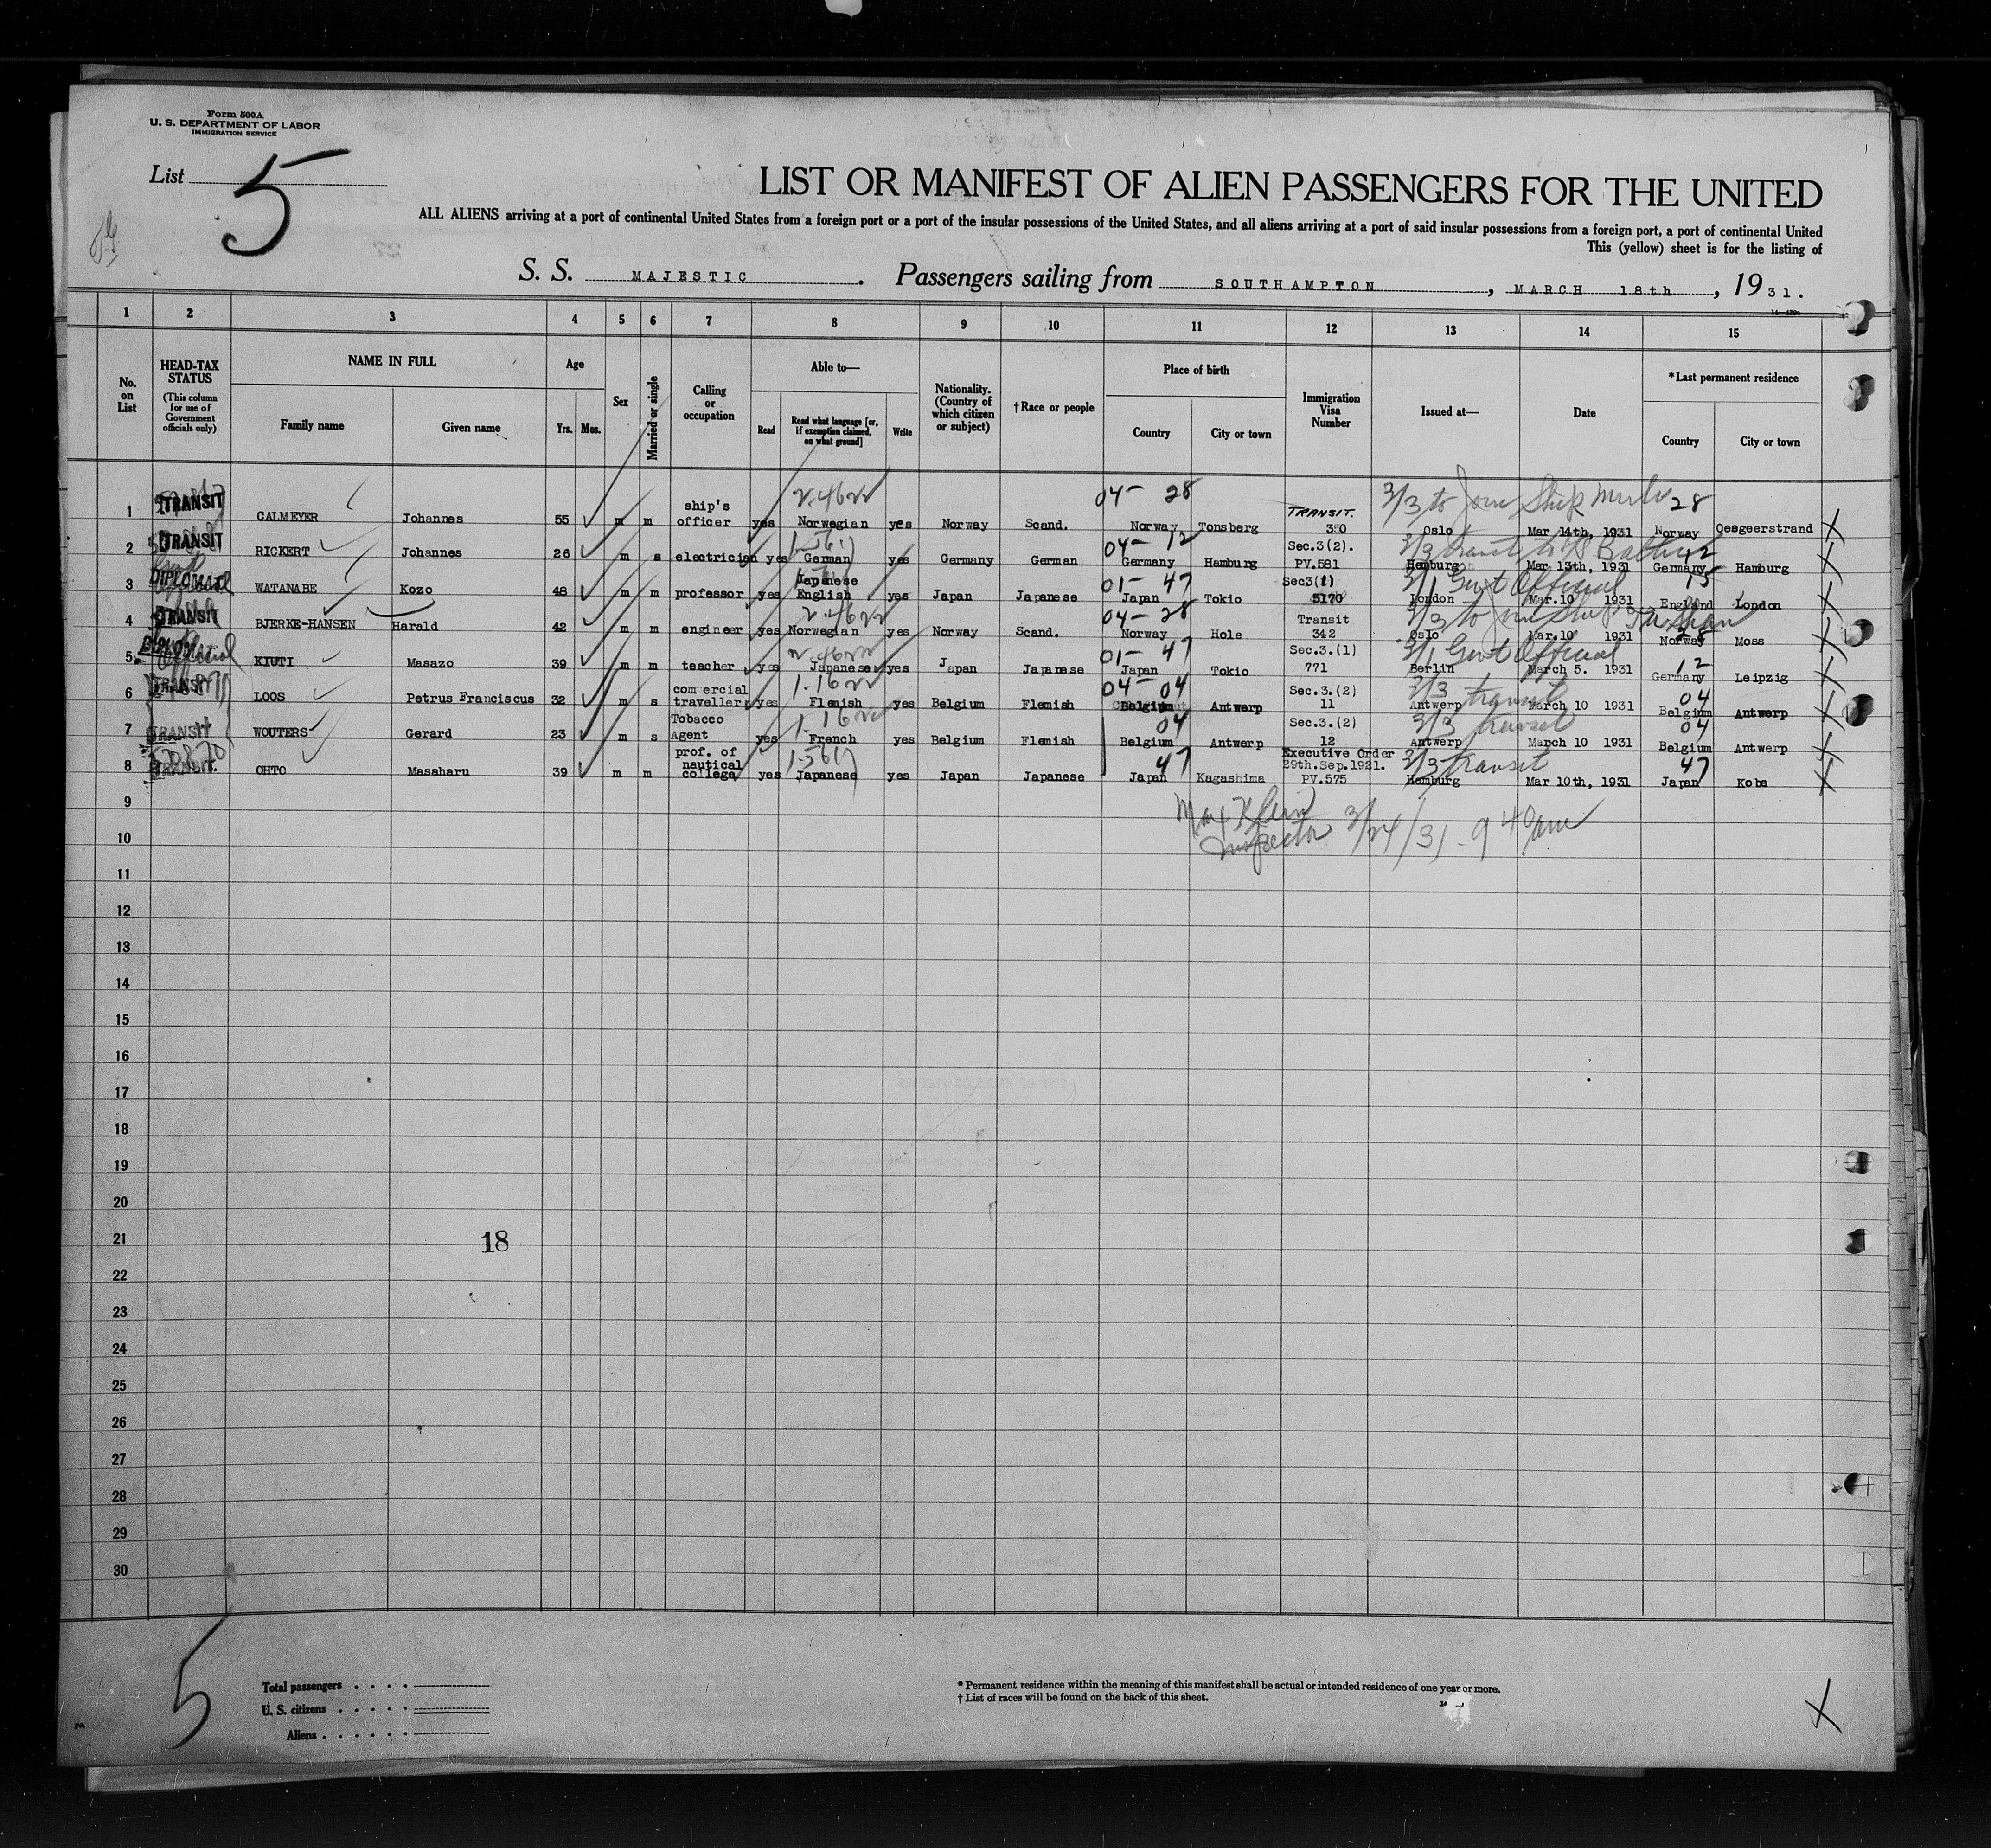 Form 500A
U. S. DEPARTMENT OF LABOR
IMMIGRATION SERVICE
List 5
LIST OR MANIFEST OF ALIEN PASSENGERS FOR THE UNITED
ALL ALIENS arriving at a port of continental United States from a foreign port or a port of the insular possessions of the United States, and all aliens arriving at a port of said insular possessions from a foreign port, a port of continental United
This (yellow) sheet is for the listing of
S. S. MAJESTIC. Passengers sailing from SOUTHAMPTON, MARCH 18th, 1931.
1 2 3 4 5 6 7 8 9 10 11 12 13 14 15
No. on List
HEAD-TAX STATUS
(This column for use of Government officials only)
NAME IN FULL
Family name Given name
Age
Yrs. Mos.
Sex
Married or single
Calling or occupation
Able to—
Read Read what language [or, if exemption claimed, on what ground] Write
Nationality. (Country of which citizen or subject)
†Race or people
Place of birth
Country City or town
Immigration Visa Number
Issued at—
Date
*Last permanent residence
Country City or town
04- 28 3/3 to Join Ship 28
1 TRANSIT CALMEYER Johannes 55 m m ship's officer yes Norwegian yes Norway Scand. Norway Tonsberg TRANSIT. 350 Oslo Mar 14th, 1931 Norway Oesgeerstrand
04- 12 3/3 transit 12
2 TRANSIT RICKERT Johannes 26 m s electrician yes German yes Germany German Germany Hamburg Sec.3(2). PV.581 Hamburg Mar 13th, 1931 Germany Hamburg
01- 47 3/1 Govt Official 15
3 DIPLOMAT WATANABE Kozo 48 m m professor yes Japanese English yes Japan Japanese Japan Tokio Sec3(1) 5170 London Mar.10 1931 England London
04- 28 3/3 to Join Ship 28
4 TRANSIT BJERKE-HANSEN Harald 42 m m engineer yes Norwegian yes Norway Scand. Norway Hole Transit 342 Oslo Mar.10 1931 Norway Moss
01- 47 3/1 Govt Official 12
5 KIUTI Masazo 39 m m teacher yes Japanese yes Japan Japanese Japan Tokio Sec.3.(1) 771 Berlin March 5. 1931 Germany Leipzig
04- 04 3/3 transit 04
6 TRANSIT LOOS Petrus Franciscus 32 m s com ercial traveller yes Flemish yes Belgium Flemish Belgium Antwerp Sec.3.(2) 11 Antwerp March 10 1931 Belgium Antwerp
04 3/3 transit 04
7 TRANSIT WOUTERS Gerard 23 m s Tobacco Agent yes French yes Belgium Flemish Belgium Antwerp Sec.3.(2) 12 Antwerp March 10 1931 Belgium Antwerp
47 3/3 transit 47
8 TRANSIT. OHTO Masaharu 39 m m prof. of nautical college yes Japanese yes Japan Japanese Japan Kagashima Executive Order 29th.Sep.1921. PV.575 Hamburg Mar 10th, 1931 Japan Kobe
9
Max Klein
Inspector 3/24/31 - 9 40 am
10
11
12
13
14
15
16
17
18
19
20
21
18
22
23
24
25
26
27
28
29
30
5
Total passengers
U. S. citizens
Aliens
* Permanent residence within the meaning of this manifest shall be actual or intended residence of one year or more.
† List of races will be found on the back of this sheet.
X